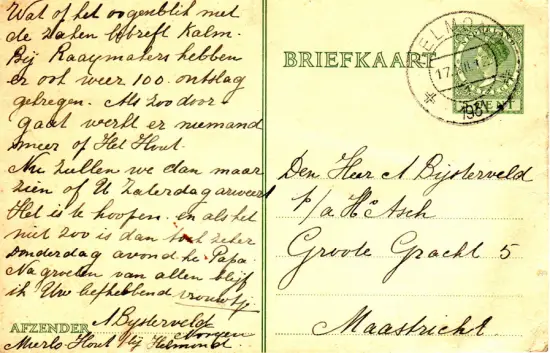 Wat of het oogenblik met
de zaken betreft kalm.
Bij Raaymakers hebben
er ook weer 100 ontslag
gekregen. Als zoo door-
gaat werkt er niemand
meer op Het Hout.
Nu zullen we dan maar
zien of U Zaterdag arriveert
Het is te hoopen. en als het
niet zoo is dan toch zeker
donderdag avond. he Papa.
Na groeten van allen blijf
ik Uw liefhebbend vrouwtje
AFZENDER A Bijsterveld
Mierlo-Hout bij Helmond.
BRIEFKAART
HELMOND
17
193
5 CENT
Den Heer A Bijsterveld
p/a Hs Asch
Groote Gracht 5
Maastricht